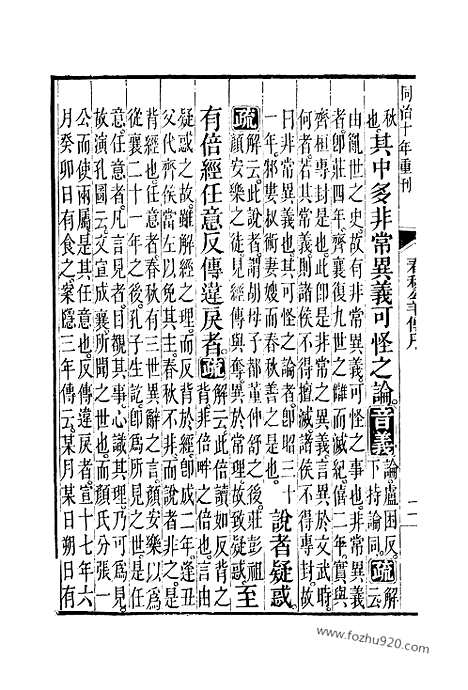 同治十年重刊
春秋公羊傳序
秋也其中多非常異義可怪之論音義論盧困反下持論同疏解云
由亂世之史故有非常異義可怪之事也非常異義
者即莊四年齊襄復九世之讎而滅紀僖二年實與
齊桓專封是也此即是非常之異義言異於文武時
何者若其常義則諸侯不得擅滅諸侯不得專封故
曰非常異義也其可怪之論者即昭三十
一年邾婁叔術妻嫂而春秋善之是也說者疑惑
疏解云此說者謂胡母子都董仲舒之後莊彭祖
顏安樂之徒見經傳與奪異於常理故致疑惑至
有倍經任意反傳違戾者疏解云此倍讀如反背之
背非倍畔之倍也言由
疑惑之故雖解經之理而反背於經即成二年逢丑
父代齊侯當左以免其主春秋不非而說者非之是
背經也任意者春秋有三世異辭之言顏安樂以為
從襄二十一年之後孔子生訖即為所見之世是任
意任意者凡言見者目覩其事心識其理乃可為見
故演孔圖云文宣成襄所聞之世也而顏氏分張一
公而使兩屬是其任意也反傳違戾者宣十七年六
月癸卯日有食之案隱三年傳云某月某日朔日有
www.fozhu920.com